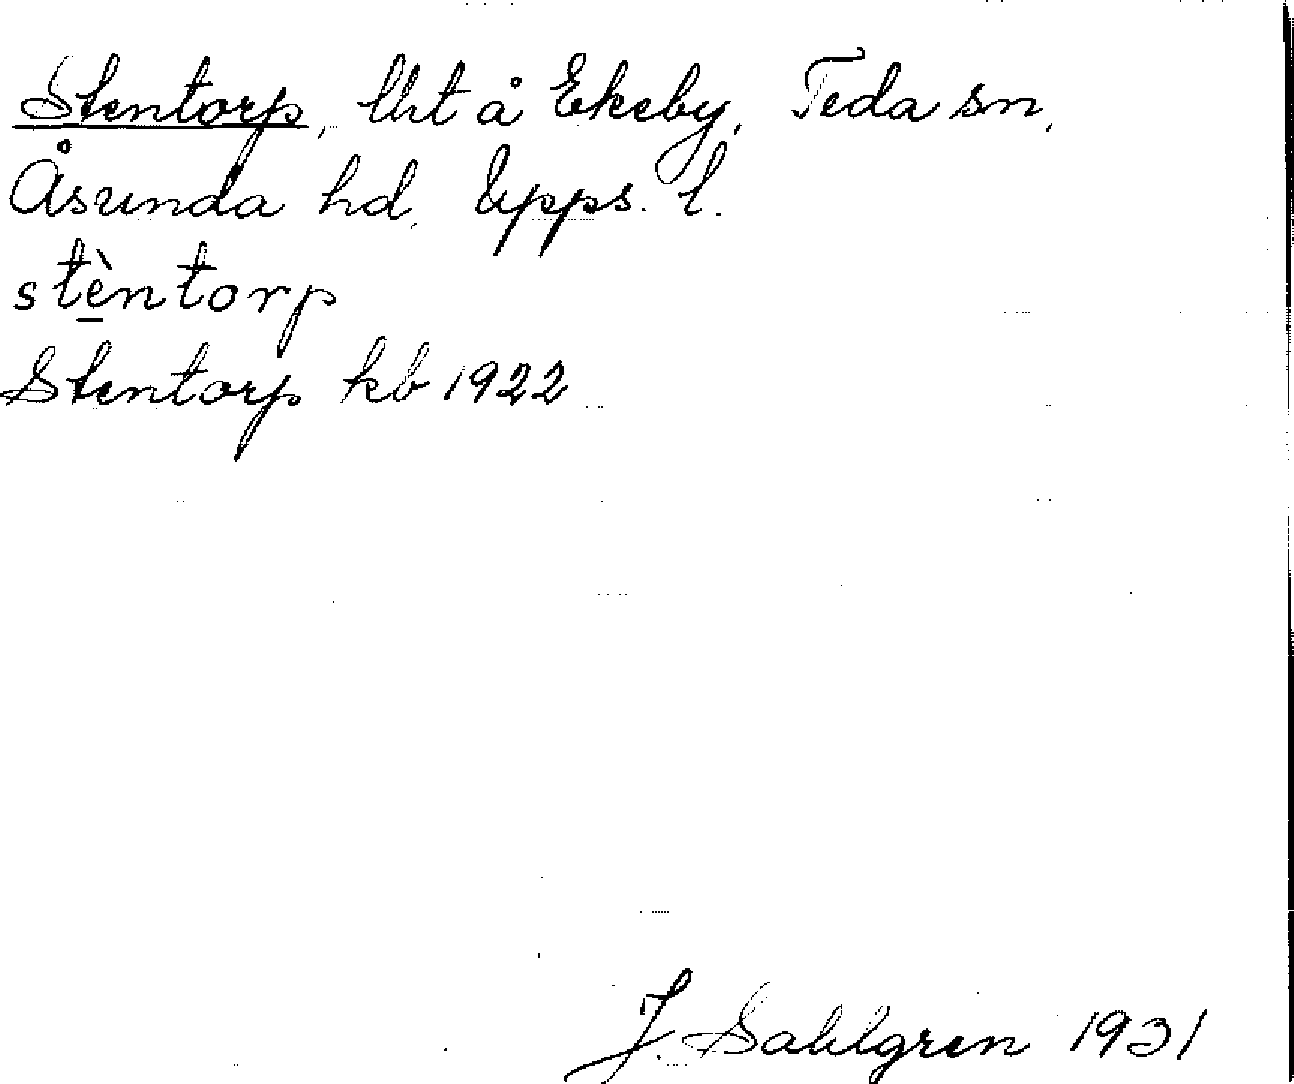 Stentorp, lht å Ekeby, Teda sn,
Åsunda hd, Upps. l.
stèntorp
Stentorp kb 1922
J. Sahlgren 1931